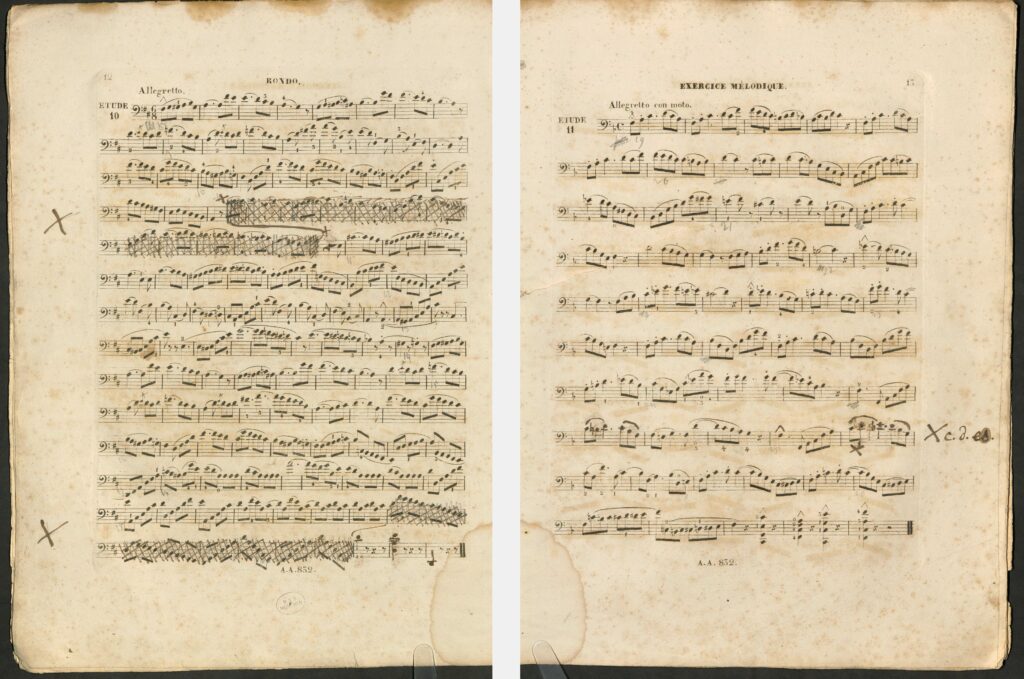 12
RONDO.
Allegretto.
ETUDE
10
A.A. 852.
EXERCICE MÉLODIQUE.
13
Allegretto con moto.
ETUDE
11
X c. d. es.
A.A. 852.